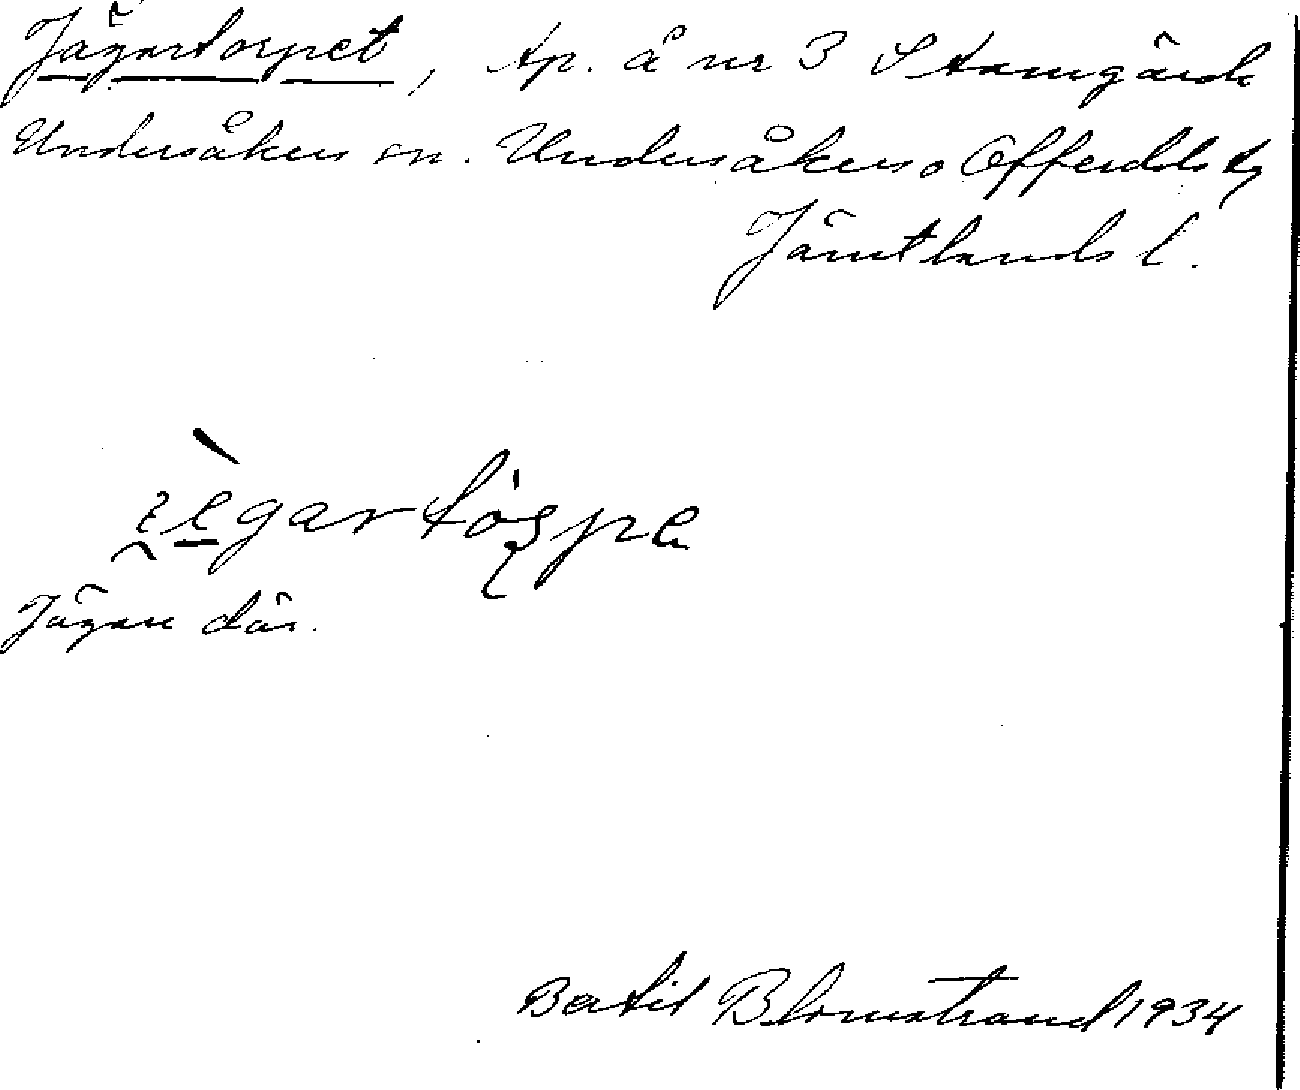 Jägartorpet, tp. å nr 3 Stamgärde
Undersåkers sn. Undersåkers o Offerdals tg
Jämtlands l.
Jägare där.
Bertil Blomstrand 1934